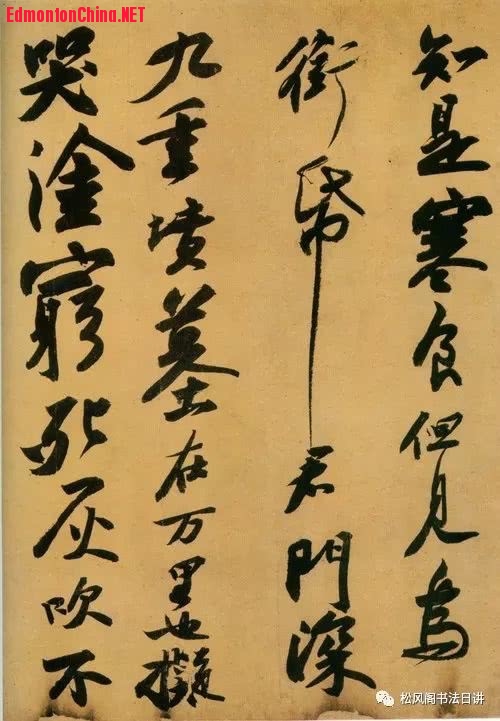 EdmontonChina.NET
知是寒食但見烏
銜帋君門深
九重墳墓在万里也擬
哭塗窮死灰吹不
松风阁书法日讲